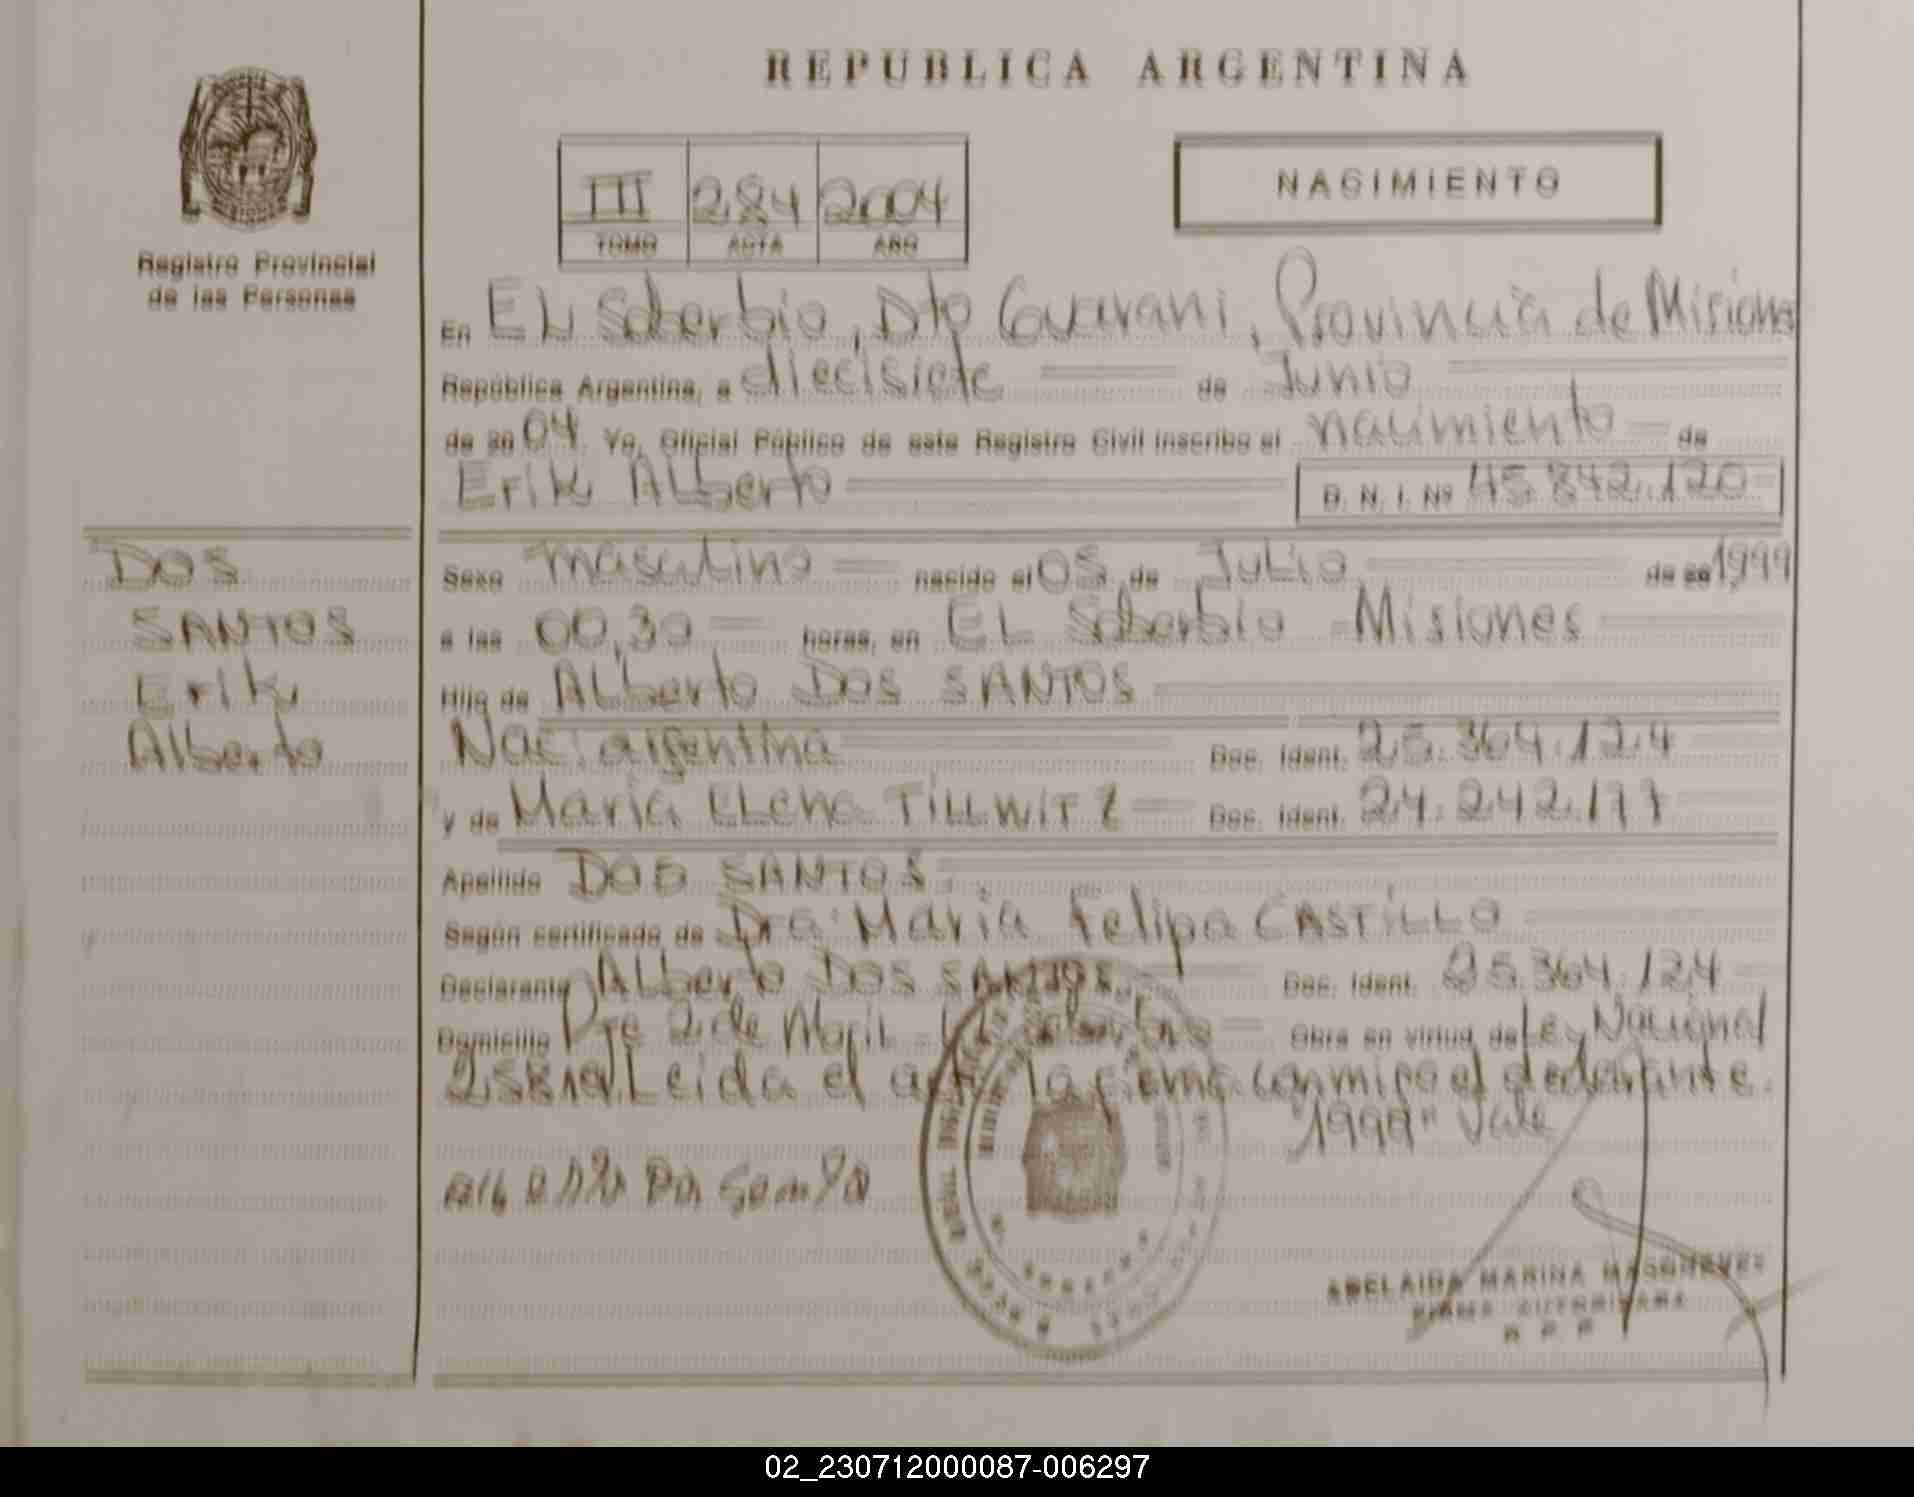 REPUBLICA ARGENTINA
III 284 2004
TOMO ACTA AÑO
NACIMIENTO
Registro Provincial
de las Personas
En EL Soberbio, Dto Guarani, Provincia de Misiones
República Argentina, a diecisiete de Junio
de 2004 Yo, Oficial Público de este Registro Civil inscribo el nacimiento de
Erik Alberto D. N. I. Nº 45.842.120
DOS
SANTOS
Erik
Alberto
Sexo masculino nacido el 05 de Julio de 1999
a las 00,30 horas, en EL Soberbio - Misiones
Hijo de Alberto DOS SANTOS
Nac: argentina Doc. Ident. 25.364.124
y de Maria ELena TILLWITZ Doc. Ident. 24.242.177
Apellido DOS SANTOS
Según certificado de Dra: Maria Felipa CASTILLO
Declarante ALberto DOS SANTOS Doc. Ident. 25.364.124
Domicilio Pje 2 de Abril - El Soberbio Obra en virtud de Ley Nacional
Leida el acta la firma conmigo el declarante.
"1999" Vale
ADELAIDA MARINA
FIRMA AUTORIZADA
R P P
02_230712000087-006297